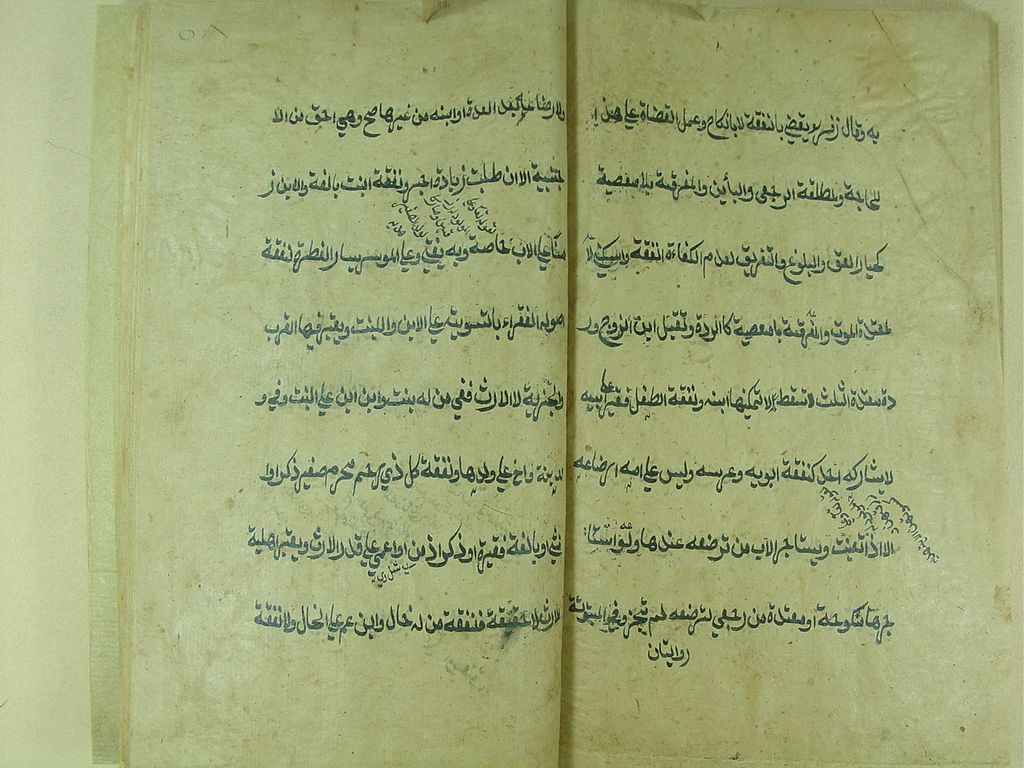 به وقال زفر يقضي بالنفقة لا بالنكاح وعمل القضاة على هذا
للحاجة ولمطلقة الرجعي والبائن والمفرقة بلا معصية
كخيار العتق والبلوغ والتفريق لعدم الكفاءة النفقة والسكنى لا
لمعتدة الموت والمفرقة بمعصية كالردة وتقبيل ابن الزوج ور
دة معتدة الثلث تسقط لا تمكينها ابنه ونفقة الطفل فقيرا على ابيه
لا يشاركه احد كنفقة ابويه وعرسه وليس على امه ارضاعه
الا اذا تعينت ويستاجر الاب من ترضعه عندها ولو استا
جرها منكوحة او معتدة من رجعي لترضعه لم تجز وفي المبتوتة
روايتان
ولارضاعه بعد العدة او ابنه من غيرها صح وهي احق من الا
جنبية الا ان طلبت زيادة اجر ونفقة البنت بالغة والابن ز
منا على الاب خاصة وبه يفتى وعلى الموسر يسار الفطرة نفقة
اصوله الفقراء بالتسوية على الابن والبنت ويعتبر فيها القرب
والجزئية لا الارث ففي من له بنت وابن ابن على البنت وفي و
لد بنت واخ على ولدها ونفقة كل ذي رحم محرم صغير ذكر او ا
نثى او بالغة فقيرة او ذكر زمن او اعمى على قدر الارث ويعتبر اهلية
الارث لا حقيقة فنفقة من له خال وابن عم على الخال ولا نفقة